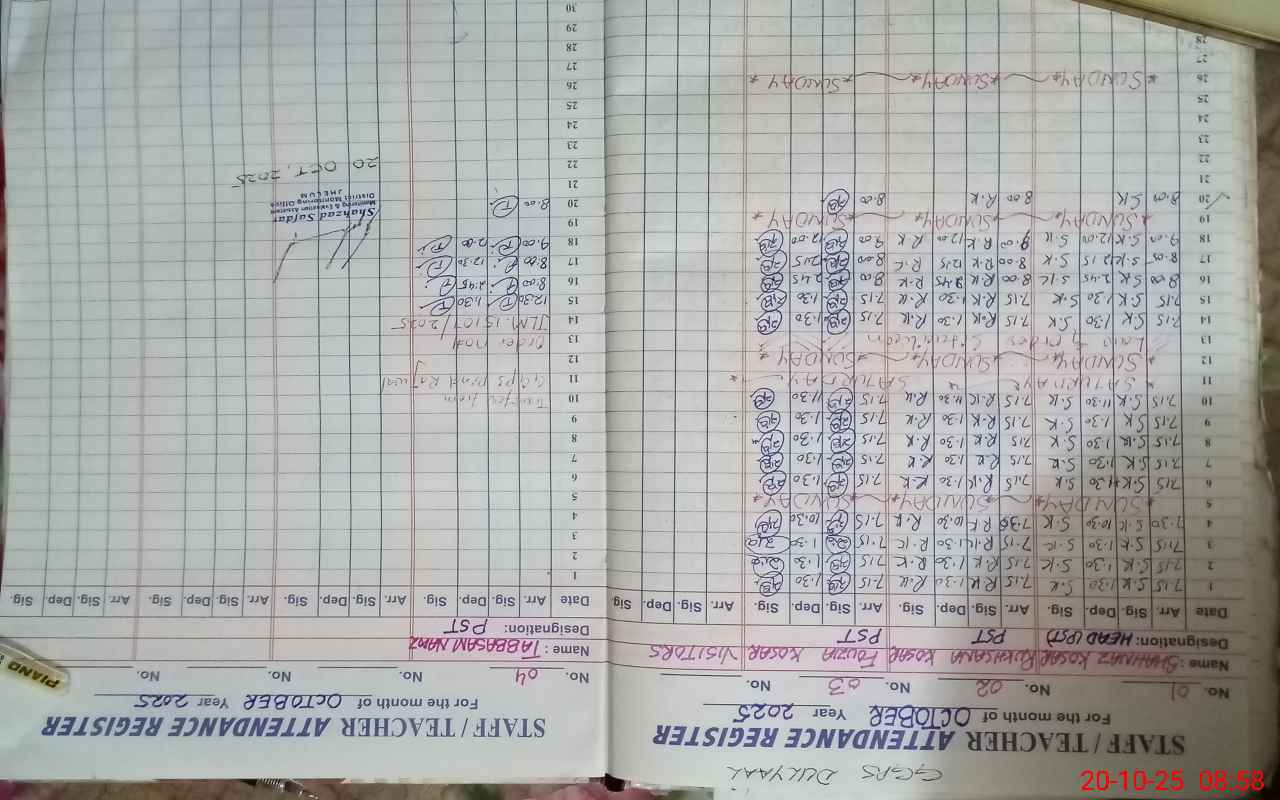 GGPS DULYAAL
STAFF / TEACHER ATTENDANCE REGISTER
For the month of OCTOBER Year 2025
No. 01 No. 02 No. 03 No.
Name : SHAHNAZ KOSAR RUKHSANA KOSAR FOUZIA KOSAR VISITORS
Designation: HEAD (PST) PST PST
Date Arr. Sig. Dep. Sig. Arr. Sig. Dep. Sig. Arr. Sig. Dep. Sig. Arr. Sig. Dep. Sig.
1 7.15 S.K 1.30 S.K 7.15 R.K 1.30 R.K 7.15 1.30
2 7.15 S.K 1.30 S.K 7.15 R.K 1.30 R.K 7.15 1.30
3 7.15 S.K 1.30 S.K 7.15 R.K 1.30 R.K 7.15 1.30
4 7.30 S.K 10.30 S.K 7.30 R.K 10.30 R.K 7.15 10.30
5 * SUNDAY * SUNDAY * SUNDAY *
6 7.15 S.K 1.30 S.K 7.15 R.K 1.30 R.K 7.15 1.30
7 7.15 S.K 1.30 S.K 7.15 R.K 1.30 R.K 7.15 1.30
8 7.15 S.K 1.30 S.K 7.15 R.K 1.30 R.K 7.15 1.30
9 7.15 S.K 1.30 S.K 7.15 R.K 1.30 R.K 7.15 1.30
10 7.15 S.K 11.30 S.K 7.15 R.K 11.30 R.K 7.15 11.30
11 * SATURDAY * SATURDAY *
12 * SUNDAY * SUNDAY * SUNDAY *
13 Law & order
14 7.15 S.K 1.30 S.K 7.15 R.K 1.30 R.K 7.15 1.30
15 7.15 S.K 1.30 S.K 7.15 R.K 1.30 R.K 7.15 1.30
16 8.00 S.K 2.45 S.K 8.00 R.K 2.45 R.K 8.00 2.45
17 8.00 S.K 12.15 S.K 8.00 R.K 12.15 R.K 8.00 12.15
18 9.00 S.K 12.00 S.K 9.00 R.K 12.00 R.K 9.00 12.00
19 * SUNDAY * SUNDAY * SUNDAY *
20 8.00 S.K 8.00 R.K 8.00
21
22
23
24
25
26 * SUNDAY * SUNDAY * SUNDAY *
27
28
STAFF / TEACHER ATTENDANCE REGISTER
For the month of OCTOBER Year 2025
No. 04 No. No. No.
Name : TABBASAM NAAZ
Designation: PST
Date Arr. Sig. Dep. Sig. Arr. Sig. Dep. Sig. Arr. Sig. Dep. Sig. Arr. Sig. Dep. Sig.
1
2
3
4
5
6
7
8
9
10 Transfer from
11 GGPS Pind
12
13 order no 4
14 JLM. 15107/2025
15 12.30 1.30
16 8.00 2.45
17 8.00 12.30
18 9.00 12.00
19
20 8.00
Shahzad Safdar
Monitoring & Evaluation Assistant
District Monitoring Office
JHELUM
20 OCT, 2025
21
22
23
24
25
26
27
28
29
30
PIANO
20-10-25 08:58